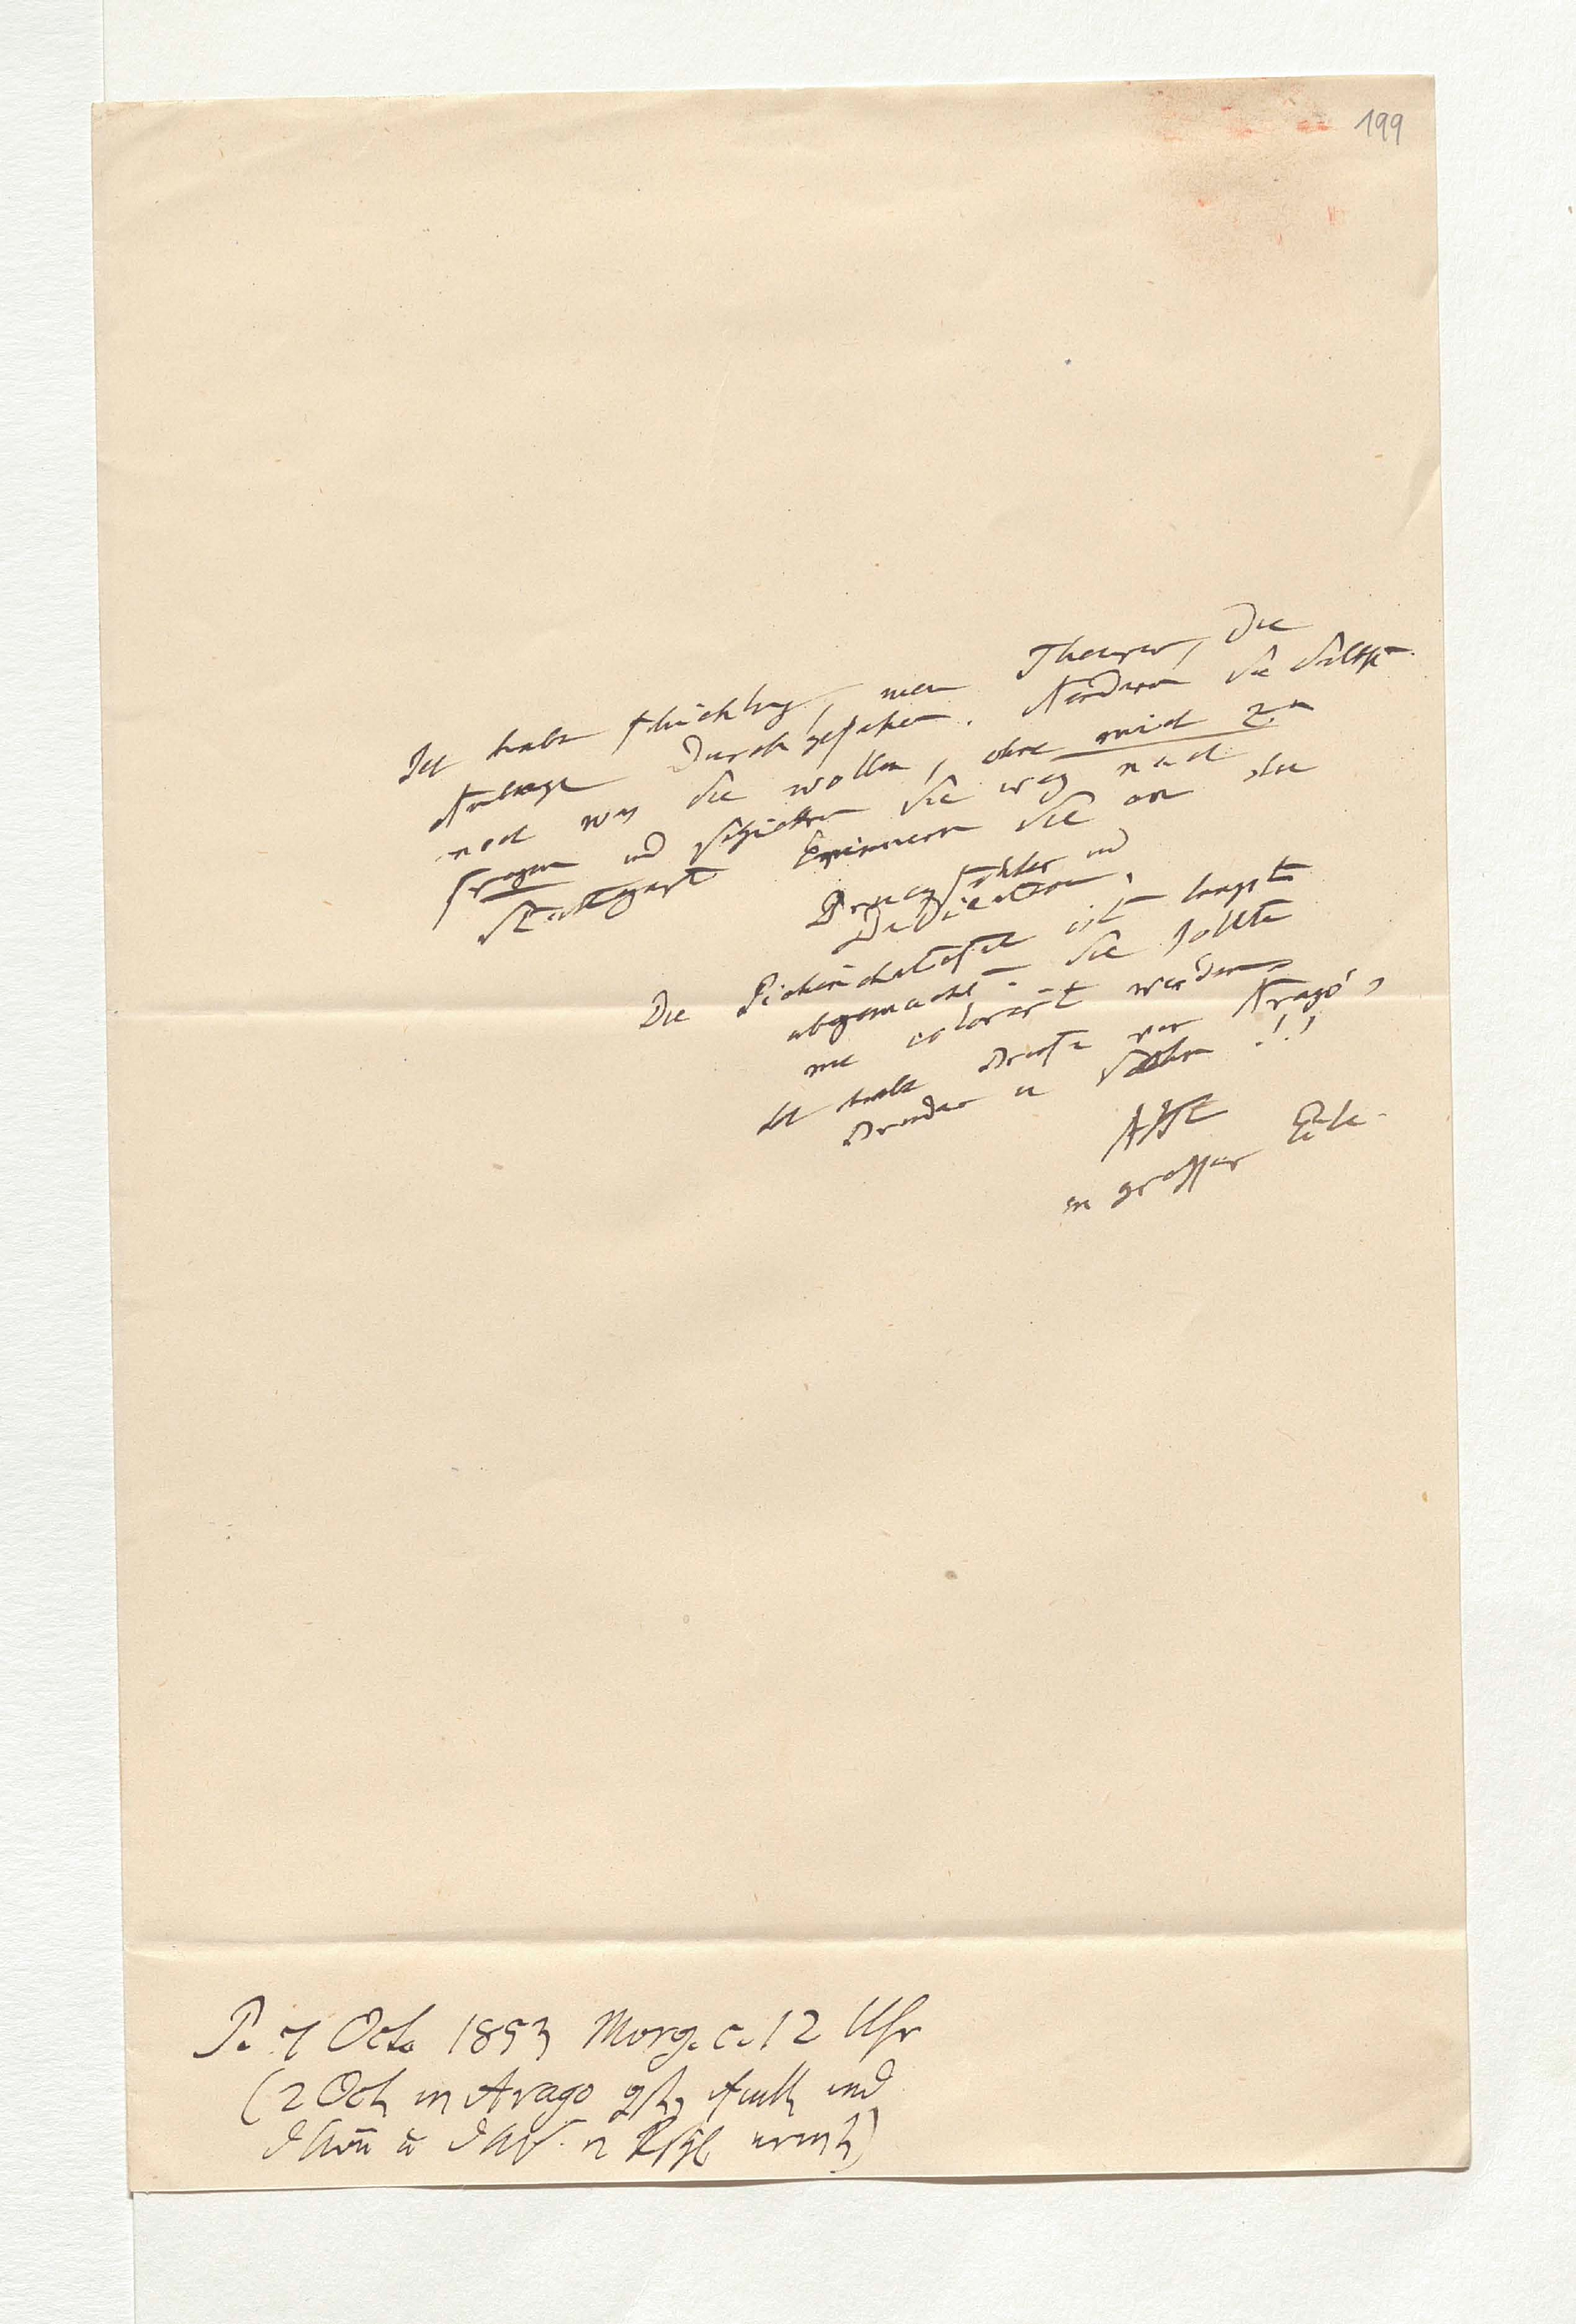 199
Ich habe flüchtig, mein Theurer, die
Anlage durchgesehen. Aendern Sie selbst
noch was Sie wollen, ohne mich zu
fragen und schicken Sie weg nach
Stuttgart Erinnern Sie an die
Druckfehler und
Dedication.
Die Pichinchatafel ist längst
abgemacht. Sie sollte
nie colorirt werden
Ich habe Briefe von Arago's
Bruder u Sohn !!!
AHt
in grosser Eile
P. 7 Oct. 1853 Morg. c. 12 Uhr
(2 Oct Arago und